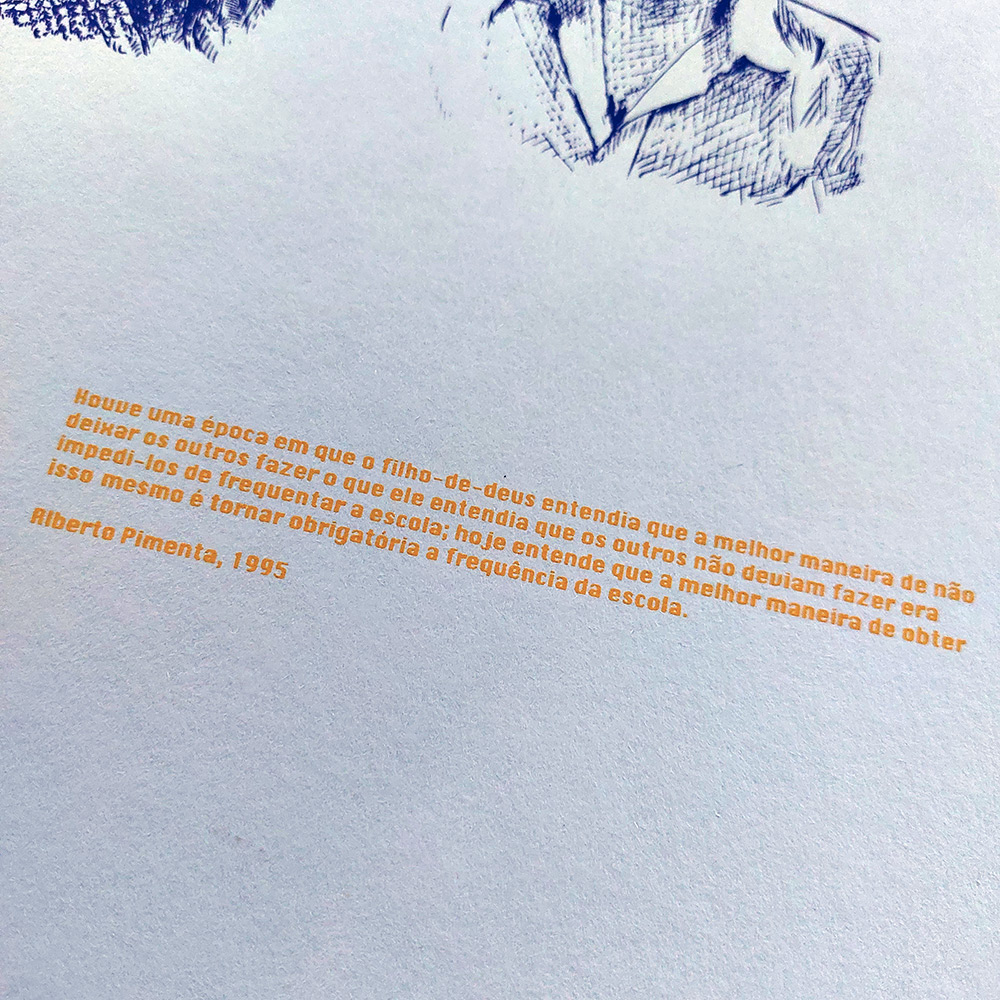 Houve uma época em que o filho-de-deus entendia que a melhor maneira de não
deixar os outros fazer o que ele entendia que os outros não deviam fazer era
impedi-los de frequentar a escola; hoje entende que a melhor maneira de obter
isso mesmo é tornar obrigatória a frequência da escola.
Alberto Pimenta, 1995